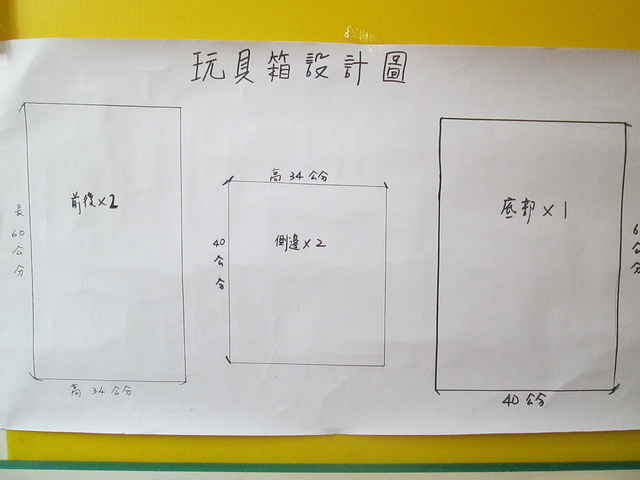 玩具箱設計圖
前後×2
長60公分
高 34 公分
高 34 公分
側邊×2
40公分
底部×1
6公分
40 公分